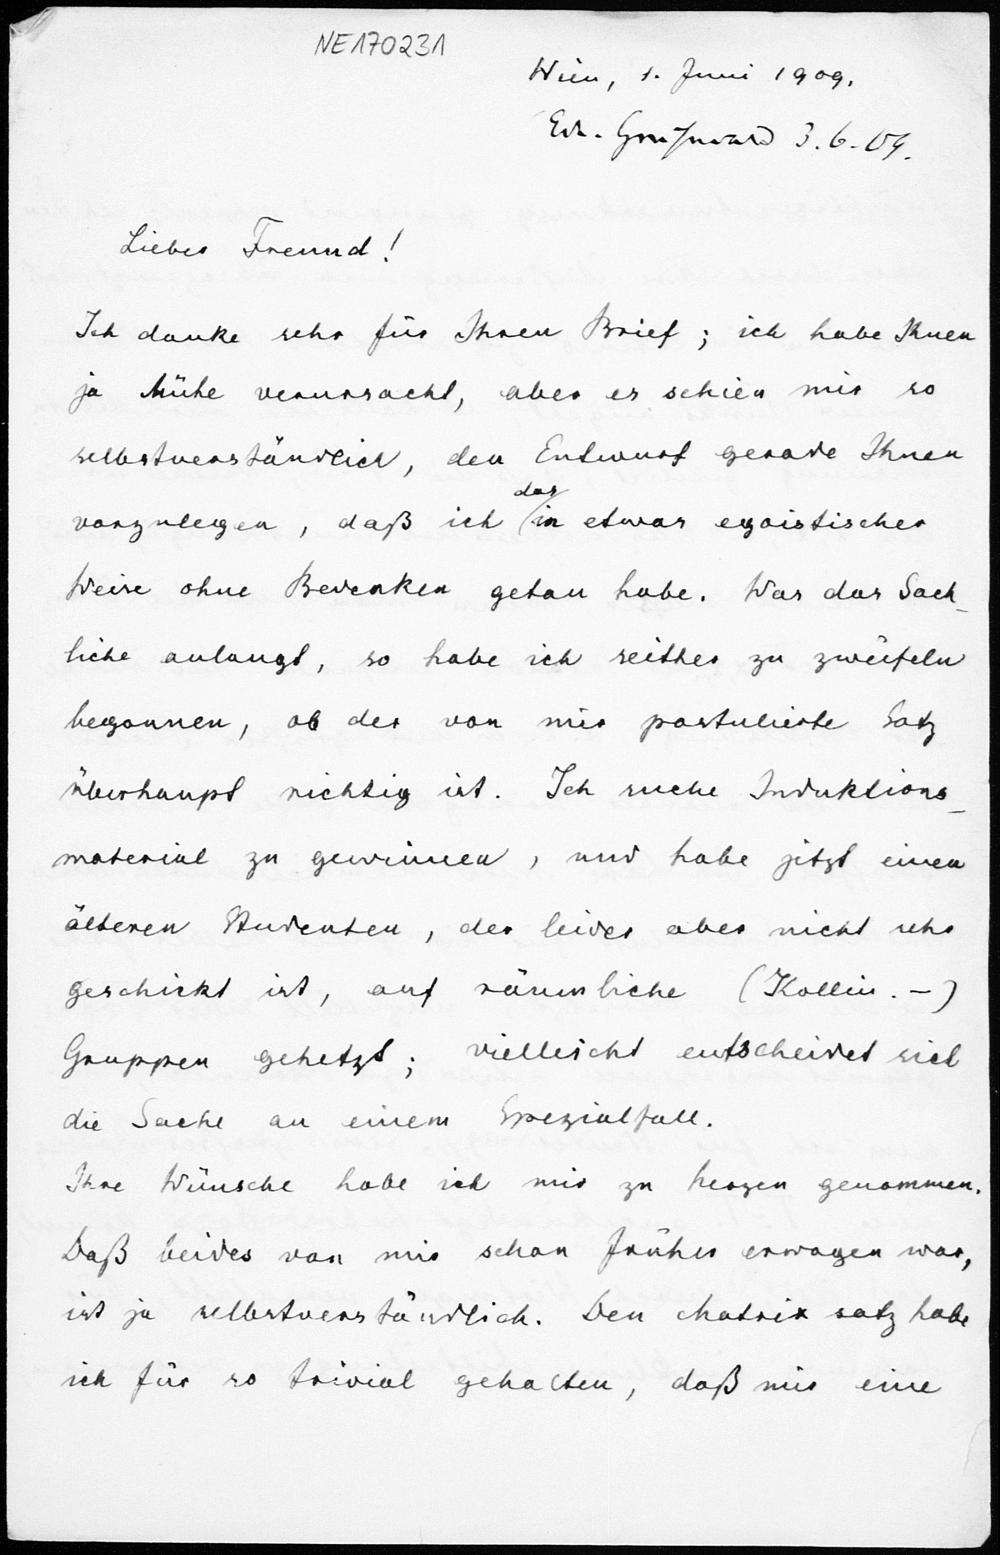 NE170231
Wien, 1. Juni 1909.
3.6.09.
Lieber Freund!
Ich danke sehr für Ihren Brief; ich habe Ihnen
ja Mühe verursacht, aber es schien mir so
selbstverständlich, den Entwurf gerade Ihnen
das
vorzulegen, daß ich in etwas egoistischer
Weise ohne Bedenken getan habe. Was das Sach-
liche anlangt, so habe ich seither zu zweifeln
begonnen, ob der von mir postulierte Satz
überhaupt richtig ist. Ich suche Induktions-
material zu gewinnen, und habe jetzt einen
älteren Studenten, der leider aber nicht sehr
geschickt ist, auf räumliche (Kollin.-)
Gruppen gehetzt; vielleicht entscheidet sich
die Sache an einem Spezialfall.
Ihre Wünsche habe ich mir zu herzen genommen.
Daß beides von mir schon früher erwogen war,
ist ja selbstverständlich. Den Matrix satz habe
ich für so trivial gehalten, daß mir eine